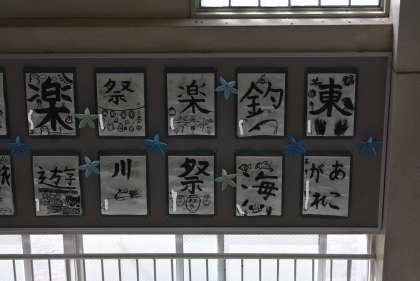 楽
祭
楽
釣
東
遊
川
祭
海
あこ
がれ